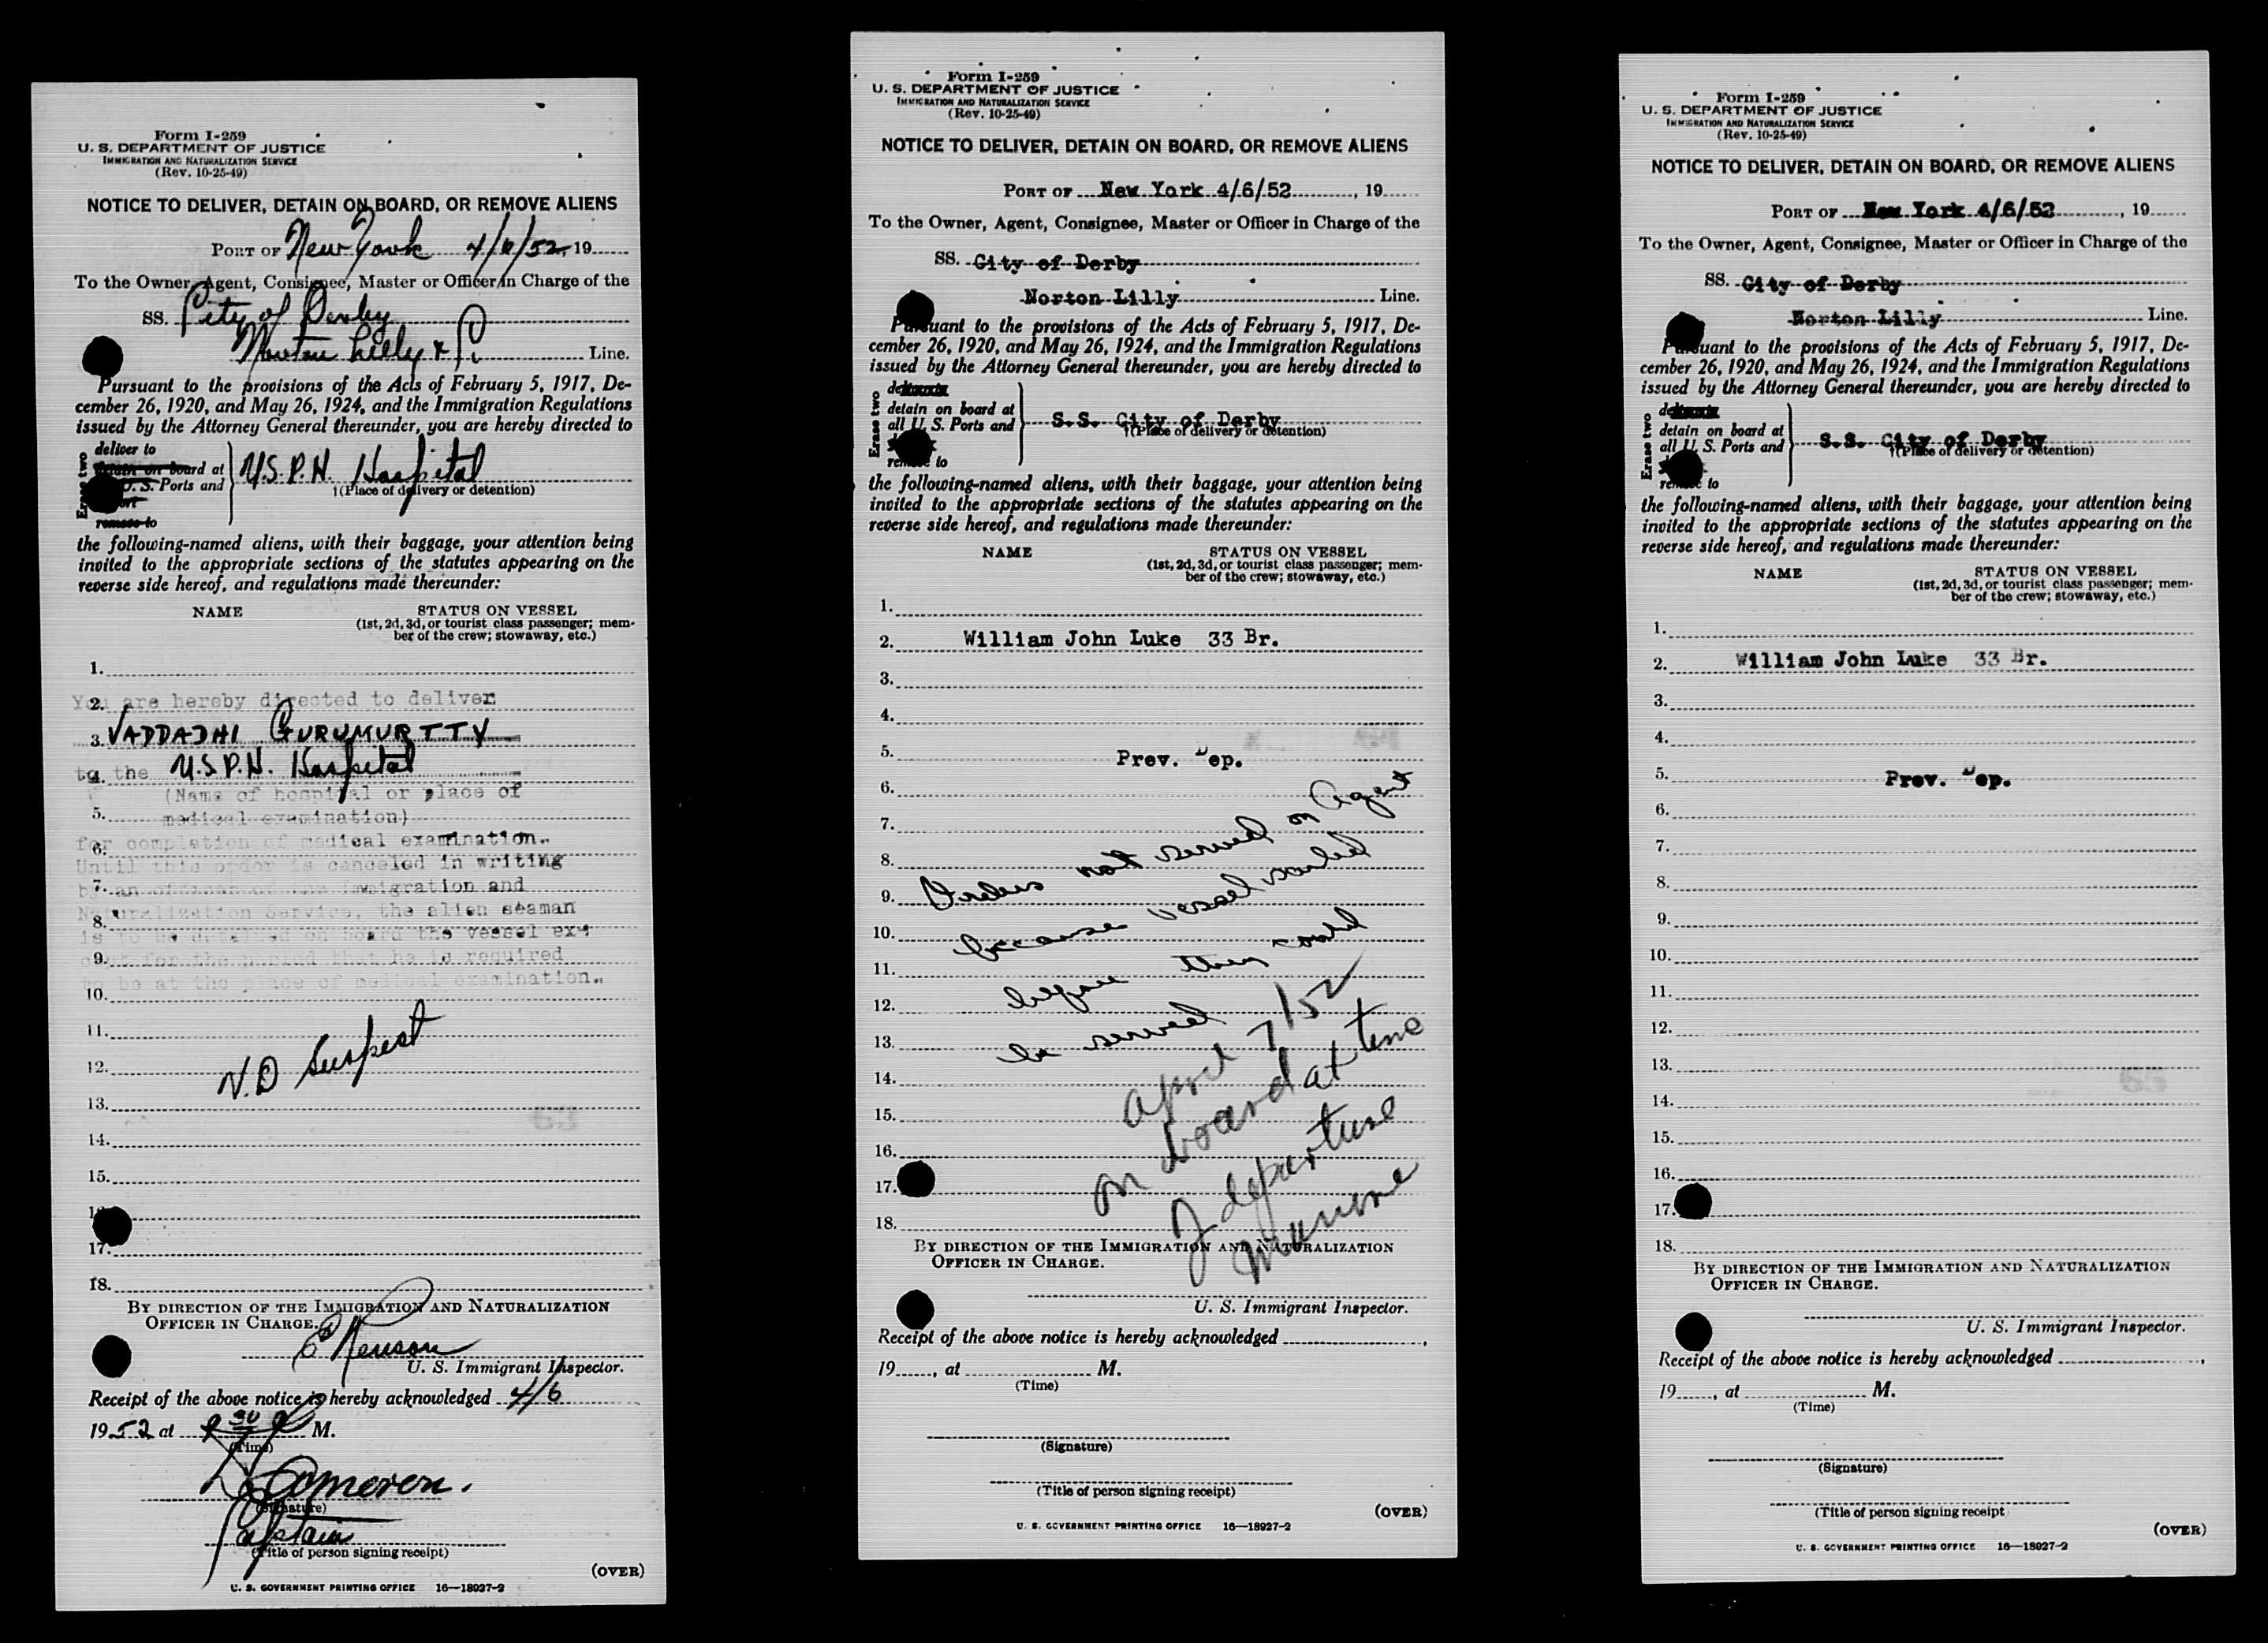 Form I-259
U. S. DEPARTMENT OF JUSTICE
IMMIGRATION AND NATURALIZATION SERVICE
(Rev. 10-25-49)
NOTICE TO DELIVER, DETAIN ON BOARD, OR REMOVE ALIENS
PORT OF New York 4/6/52, 19
To the Owner, Agent, Consignee, Master or Officer in Charge of the
SS. City of Derby
Norton Lilly & Line.
Pursuant to the provisions of the Acts of February 5, 1917, De-
cember 26, 1920, and May 26, 1924, and the Immigration Regulations
issued by the Attorney General thereunder, you are hereby directed to
Erase two
deliver to
detain on board at
U. S. Ports and
remove to
U.S.P.H. Hospital
†(Place of delivery or detention)
the following-named aliens, with their baggage, your attention being
invited to the appropriate sections of the statutes appearing on the
reverse side hereof, and regulations made thereunder:
NAME STATUS ON VESSEL
(1st, 2d, 3d, or tourist class passenger; mem-
ber of the crew; stowaway, etc.)
1.
2. You are hereby directed to deliver
3. VADDADHI GURUMURTTY
4. to the U.S.P.H. Hospital
(Name of hospital or place of
5. medical examination)
6. for completion of medical examination.
Until this order is canceled in writing
7. by an officer of the Immigration and
8. Naturalization Service, the alien seaman
is to be detained on board the vessel ex-
9. cept for the period that he is required
to be at the place of medical examination.
10.
11.
12. V.D Suspect
13.
14.
15.
17.
18.
BY DIRECTION OF THE IMMIGRATION AND NATURALIZATION
OFFICER IN CHARGE.
U. S. Immigrant Inspector.
Receipt of the above notice is hereby acknowledged 4/6
1952 at M.
(Time)
Cameron.
(Signature)
Captain
(Title of person signing receipt)
(OVER)
U. S. GOVERNMENT PRINTING OFFICE 16—18927-2
Form I-259
U. S. DEPARTMENT OF JUSTICE
IMMIGRATION AND NATURALIZATION SERVICE
(Rev. 10-25-49)
NOTICE TO DELIVER, DETAIN ON BOARD, OR REMOVE ALIENS
PORT OF New York 4/6/52, 19
To the Owner, Agent, Consignee, Master or Officer in Charge of the
SS. City of Derby
Norton Lilly Line.
Pursuant to the provisions of the Acts of February 5, 1917, De-
cember 26, 1920, and May 26, 1924, and the Immigration Regulations
issued by the Attorney General thereunder, you are hereby directed to
Erase two
detain on board at
all U. S. Ports and
remove to
S.S. City of Derby
†(Place of delivery or detention)
the following-named aliens, with their baggage, your attention being
invited to the appropriate sections of the statutes appearing on the
reverse side hereof, and regulations made thereunder:
NAME STATUS ON VESSEL
(1st, 2d, 3d, or tourist class passenger; mem-
ber of the crew; stowaway, etc.)
1.
2. William John Luke 33 Br.
3.
4.
5. Prev. Dep.
6.
7.
8.
9.
10.
11.
12.
13.
14.
15.
16.
17.
18.
Orders not served on Agent
because vessel sailed
before they could
be served
April 7/52
on board at time
of departure
BY DIRECTION OF THE IMMIGRATION AND NATURALIZATION
OFFICER IN CHARGE.
U. S. Immigrant Inspector.
Receipt of the above notice is hereby acknowledged ,
19 , at M.
(Time)
(Signature)
(Title of person signing receipt)
(OVER)
U. S. GOVERNMENT PRINTING OFFICE 16—18927-2
Form I-259
U. S. DEPARTMENT OF JUSTICE
IMMIGRATION AND NATURALIZATION SERVICE
(Rev. 10-25-49)
NOTICE TO DELIVER, DETAIN ON BOARD, OR REMOVE ALIENS
PORT OF New York 4/6/52, 19
To the Owner, Agent, Consignee, Master or Officer in Charge of the
SS. City of Derby
Norton Lilly Line.
Pursuant to the provisions of the Acts of February 5, 1917, De-
cember 26, 1920, and May 26, 1924, and the Immigration Regulations
issued by the Attorney General thereunder, you are hereby directed to
Erase two
detain on board at
all U. S. Ports and
remove to
S.S. City of Derby
†(Place of delivery or detention)
the following-named aliens, with their baggage, your attention being
invited to the appropriate sections of the statutes appearing on the
reverse side hereof, and regulations made thereunder:
NAME STATUS ON VESSEL
(1st, 2d, 3d, or tourist class passenger; mem-
ber of the crew; stowaway, etc.)
1.
2. William John Luke 33 Br.
3.
4.
5. Prev. Dep.
6.
7.
8.
9.
10.
11.
12.
13.
14.
15.
16.
17.
18.
BY DIRECTION OF THE IMMIGRATION AND NATURALIZATION
OFFICER IN CHARGE.
U. S. Immigrant Inspector.
Receipt of the above notice is hereby acknowledged ,
19 , at M.
(Time)
(Signature)
(Title of person signing receipt
(OVER)
U. S. GOVERNMENT PRINTING OFFICE 16—18927-2